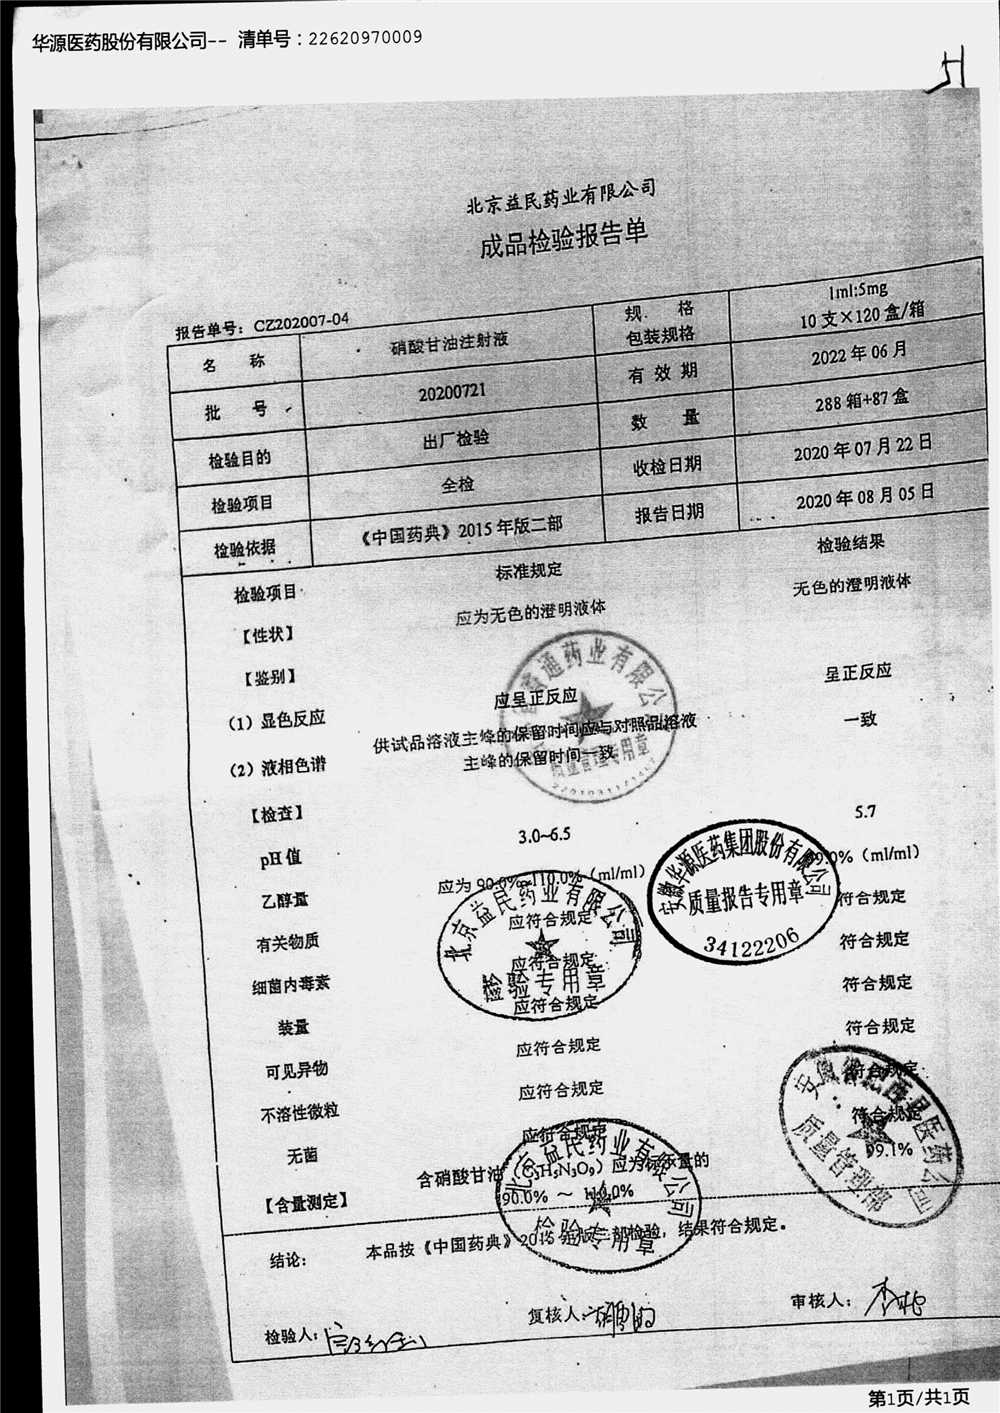 华源医药股份有限公司-- 清单号：22620970009
北京益民药业有限公司
成品检验报告单
报告单号：CZ202007-04
名 称 硝酸甘油注射液 规 格 1ml:5mg
包装规格 10支×120盒/箱
批 号 20200721 有 效 期 2022年06月
检验目的 出厂检验 数 量 288箱+87盒
检验项目 全检 收检日期 2020年07月22日
检验依据 《中国药典》2015年版二部 报告日期 2020年08月05日
检验项目 标准规定 检验结果
【性状】 应为无色的澄明液体 无色的澄明液体
【鉴别】
（1）显色反应 应呈正反应 呈正反应
（2）液相色谱 供试品溶液主峰的保留时间应与对照品溶液 一致
主峰的保留时间一致
【检查】
pH值 3.0~6.5 5.7
乙醇量 应为90.0%~110.0%（ml/ml） 99.0%（ml/ml）
有关物质 应符合规定 符合规定
细菌内毒素 应符合规定 符合规定
装量 应符合规定 符合规定
可见异物 应符合规定 符合规定
不溶性微粒 应符合规定 符合规定
无菌 应符合规定 符合规定
【含量测定】 含硝酸甘油（C₃H₅N₃O₉）应为标示量的 99.1%
90.0% ~ 110.0%
结论： 本品按《中国药典》2015年版二部检验，结果符合规定。
检验人： 复核人： 审核人：
通药业有限公
质量管理专用章
安徽华源医药集团股份有限公司
质量报告专用章
34122206
北京益民药业有限公司
检验专用章
安徽省肥西县医药公司
质量管理部
北京益民药业有限公司
检验专用章
第1页/共1页